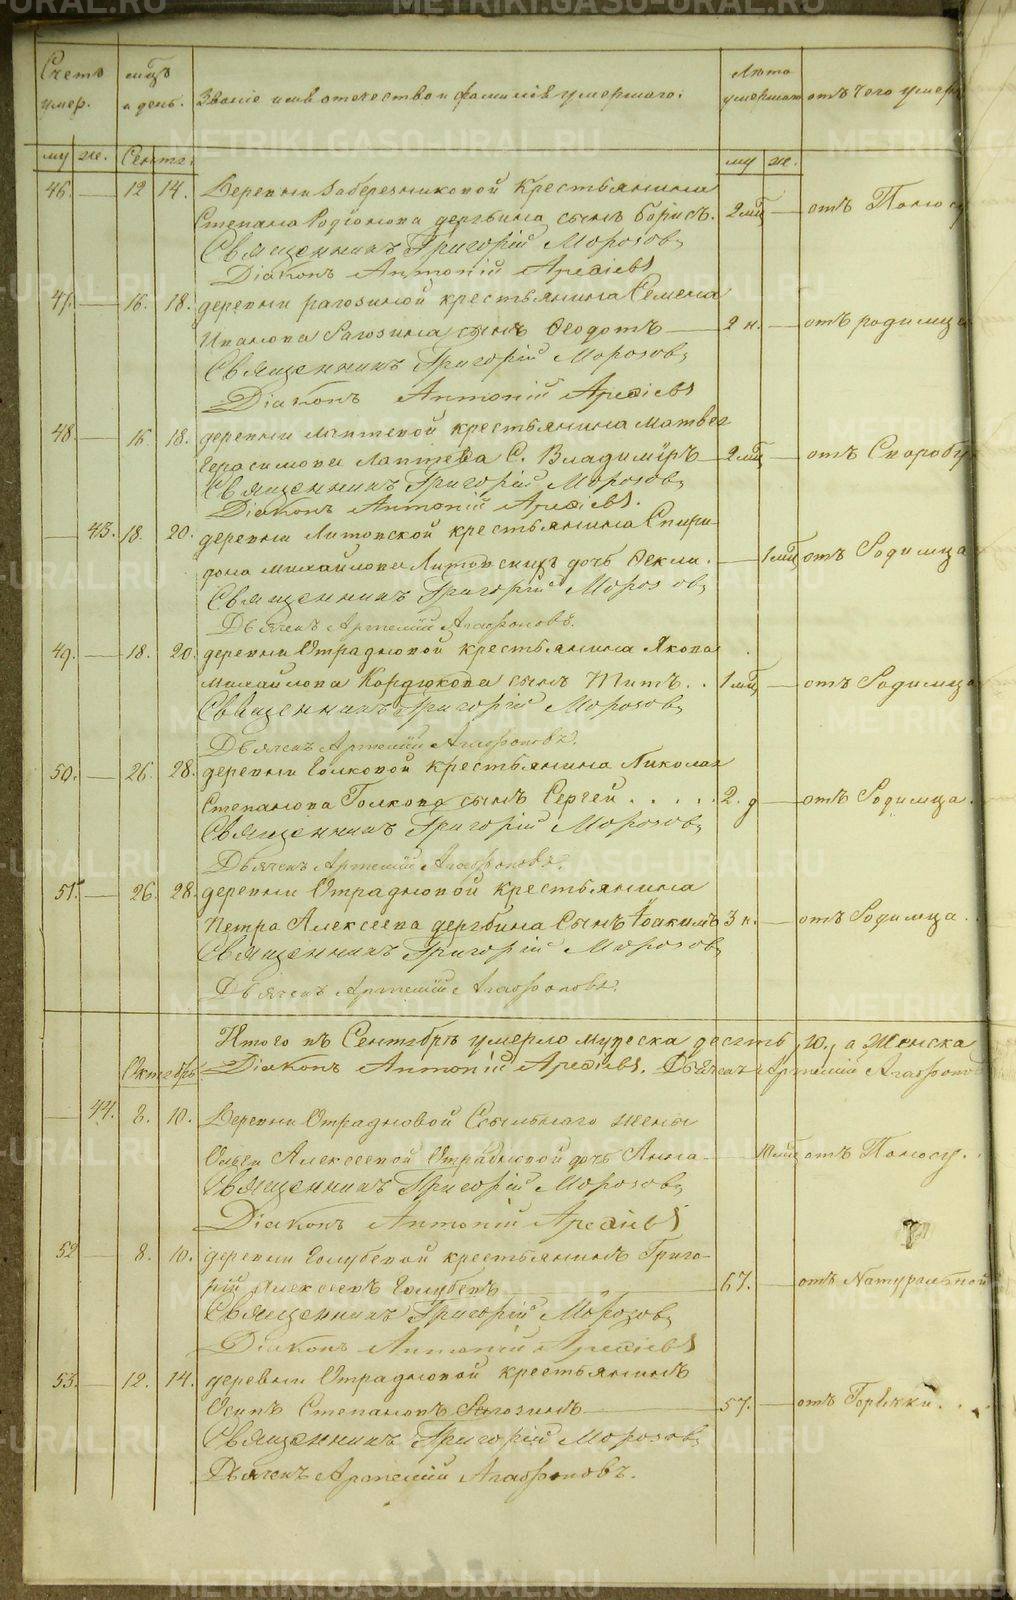 Счетъ умер.
мцъ и день.
Званіе имя отечество и фамилія умершаго.
Лѣта умершаго
отъ чего умер
му же. Сентя. му же.
46. — 12 14. Деревни Заберезниковой Крестьянина
Степана Родіонова дерябина сынъ борисъ. 2 мц — отъ Поносу
Священникъ Григорій Морозовъ
Діаконъ Антоній
47. — 16. 18. деревни рагозиной крестьянина Семена
Иванова Рагозина сынъ Ѳеодотъ — 2 н. — отъ родимца
Священникъ Григорій Морозовъ
Діаконъ Антоній
48. — 16 18. деревни лаптевой крестьянина Матвея
Герасимова Лаптева С. Владиміръ — 2 мц — отъ Скоробу
Священникъ Григорій Морозовъ
Діаконъ Антоній
— 43. 18. 20. деревни Литовской крестьянина Спири-
дона михайлова Литовскихъ дочь Ѳекла. — 1 мц отъ Родимца
Священникъ Григорій Морозовъ
Дьячекъ Артемій Агафоновъ.
49. — 18. 20. деревни Отрадновой крестьянина Якова
Михайлова Кордюкова сынъ Титъ. . 1 мц — отъ Родимца
Священникъ Григорій Морозовъ
Дьячекъ Артемій Агафоновъ.
50. — 26. 28. деревни Голковой крестьянина Николая
Степанова Голкова сынъ Сергей . . . . . 2. д — отъ Родимца.
Священникъ Григорій Морозовъ
Дьячекъ Артемій Агафоновъ.
51. — 26. 28. деревни Отрадновой крестьянина
Петра Алексеева дерябина Сынъ Іоакимъ 3 н. — отъ Родимца . .
Священникъ Григорій Морозовъ
Дьячекъ Артемій Агафоновъ.
Итого въ Сентябрѣ умерло мужеска десять, 10., а Женска
Октябрь Діаконъ Антоній Дьячекъ Артемій Агафонов
— 44. 8. 10. Деревни Отрадновой Ссыльнаго жены
Алексеевой Отрадновой дочь Анна — отъ Поносу. .
Священникъ Григорій Морозовъ
Діаконъ Антоній
52 — 8. 10. деревни Голубевой крестьянинъ Григо-
рій Алексеевъ Голубевъ — 67. — отъ Натуральной
Священникъ Григорій Морозовъ
Діаконъ Антоній
53. — 12. 14. деревни Отрадновой крестьянинъ
Осипъ Степановъ Рагозинъ — 57. — отъ Горячки. . .
Священникъ Григорій Морозовъ
Дьячекъ Артемій Агафоновъ.
METRIKI.GASO-URAL.RU